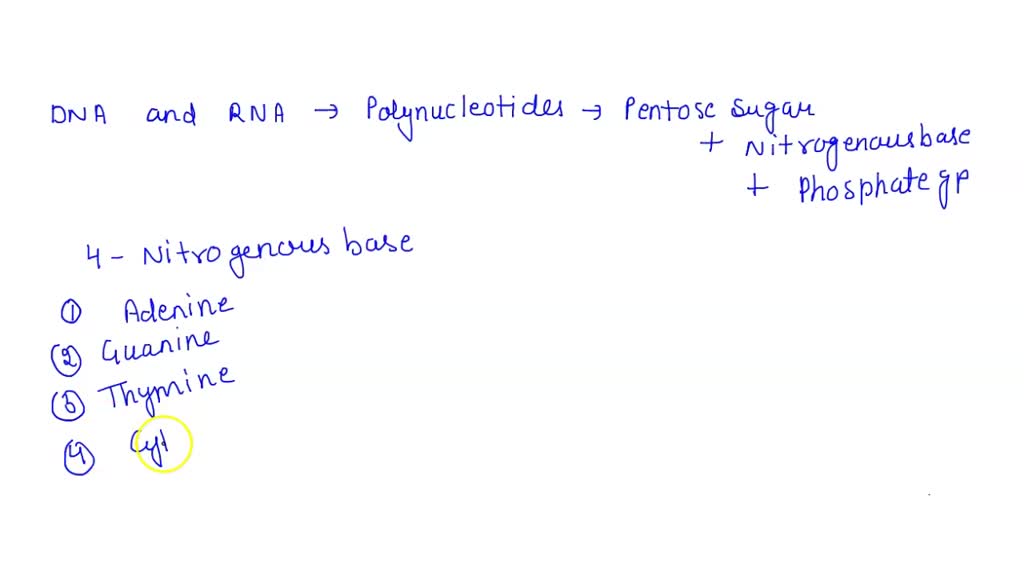 DNA and RNA → Polynucleotides → Pentose sugar
+ Nitrogenous base
+ Phosphate gp
4 - Nitrogenous base
① Adenine
② Guanine
③ Thymine
④ Cyt